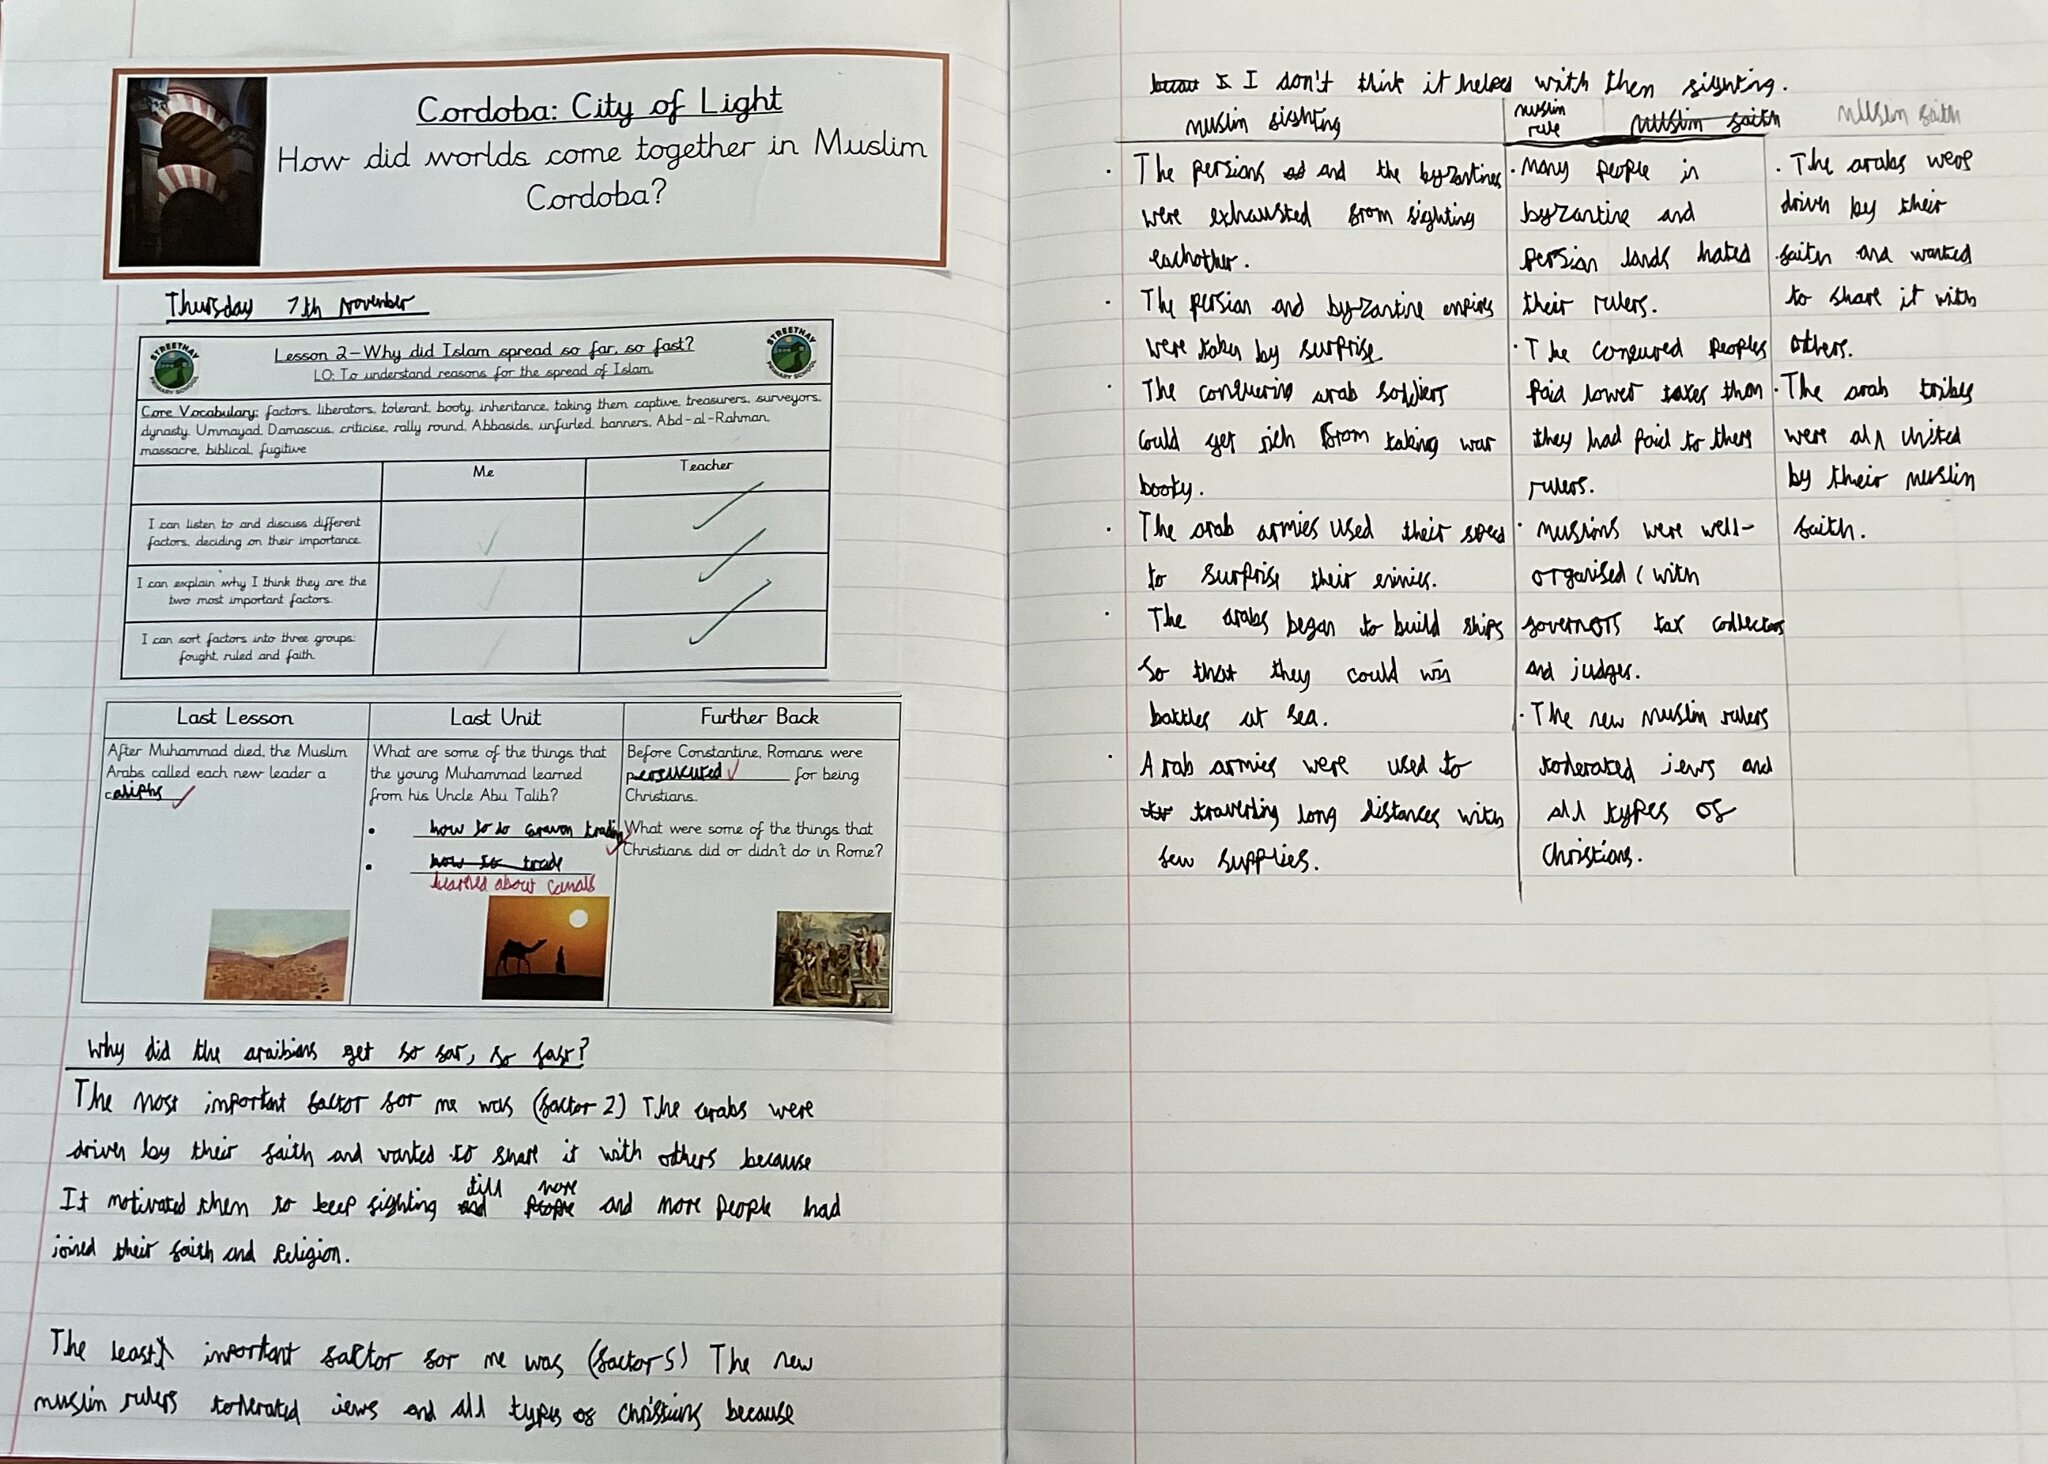 Cordoba: City of Light
How did worlds come together in Muslim
Cordoba?
Thursday 7th November
STREETHAY
PRIMARY SCHOOL
Lesson 2-Why did Islam spread so far, so fast?
LO: To understand reasons for the spread of Islam.
STREETHAY
PRIMARY SCHOOL
Core Vocabulary: factors, liberators, tolerant, booty, inheritance, taking them captive, treasurers, surveyors,
dynasty, Ummayad, Damascus, criticise, rally round, Abbasids, unfurled, banners, Abd-al-Rahman,
massacre, biblical, fugitive
Me
Teacher
I can listen to and discuss different
factors, deciding on their importance.
I can explain why I think they are the
two most important factors.
I can sort factors into three groups:
fought, ruled and faith.
Last Lesson
After Muhammad died, the Muslim
Arabs called each new leader a
caliphs
Last Unit
What are some of the things that
the young Muhammad learned
from his Uncle Abu Talib?
• how to do caravan trading
• how to trade
learned about camals
Further Back
Before Constantine, Romans were
persucuted for being
Christians.
What were some of the things that
Christians did or didn't do in Rome?
Why did the araibians get so far, so fast?
The most important factor for me was (factor 2) The arabs were
driven by their faith and wanted to share it with others because
till more
It motivated them to keep fighting and people and more people had
joined their faith and religion.
The least important factor for me was (factor 5) The new
muslim rulers tolerated jews and all types of christians because
I don't think it helped with them fighting.
muslim fighting
muslim
rule
muslim faith
muslim faith
· The persians and the byzantines
were exhausted from fighting
eachother.
· The persian and byzantine empires
were taken by surprise.
· The conquering arab soldiers
could get rich from taking war
booty.
· The arab armies used their speed
to surprise their enimies.
· The arabs began to build ships
so that they could win
battles at sea.
· Arab armies were used to
traverling long distances with
few supplies.
· many people in
byzantine and
persian lands hated
their rulers.
· The conqured peoples
paid lower taxes than
they had paid to there
rulers.
· muslims were well-
organised (with
governors tax collectors
and judges.
· The new muslim rulers
tolerated jews and
all types of
christians.
· The arabs were
driven by their
faith and wanted
to share it with
others.
· The arab tribes
were all united
by their muslim
faith.